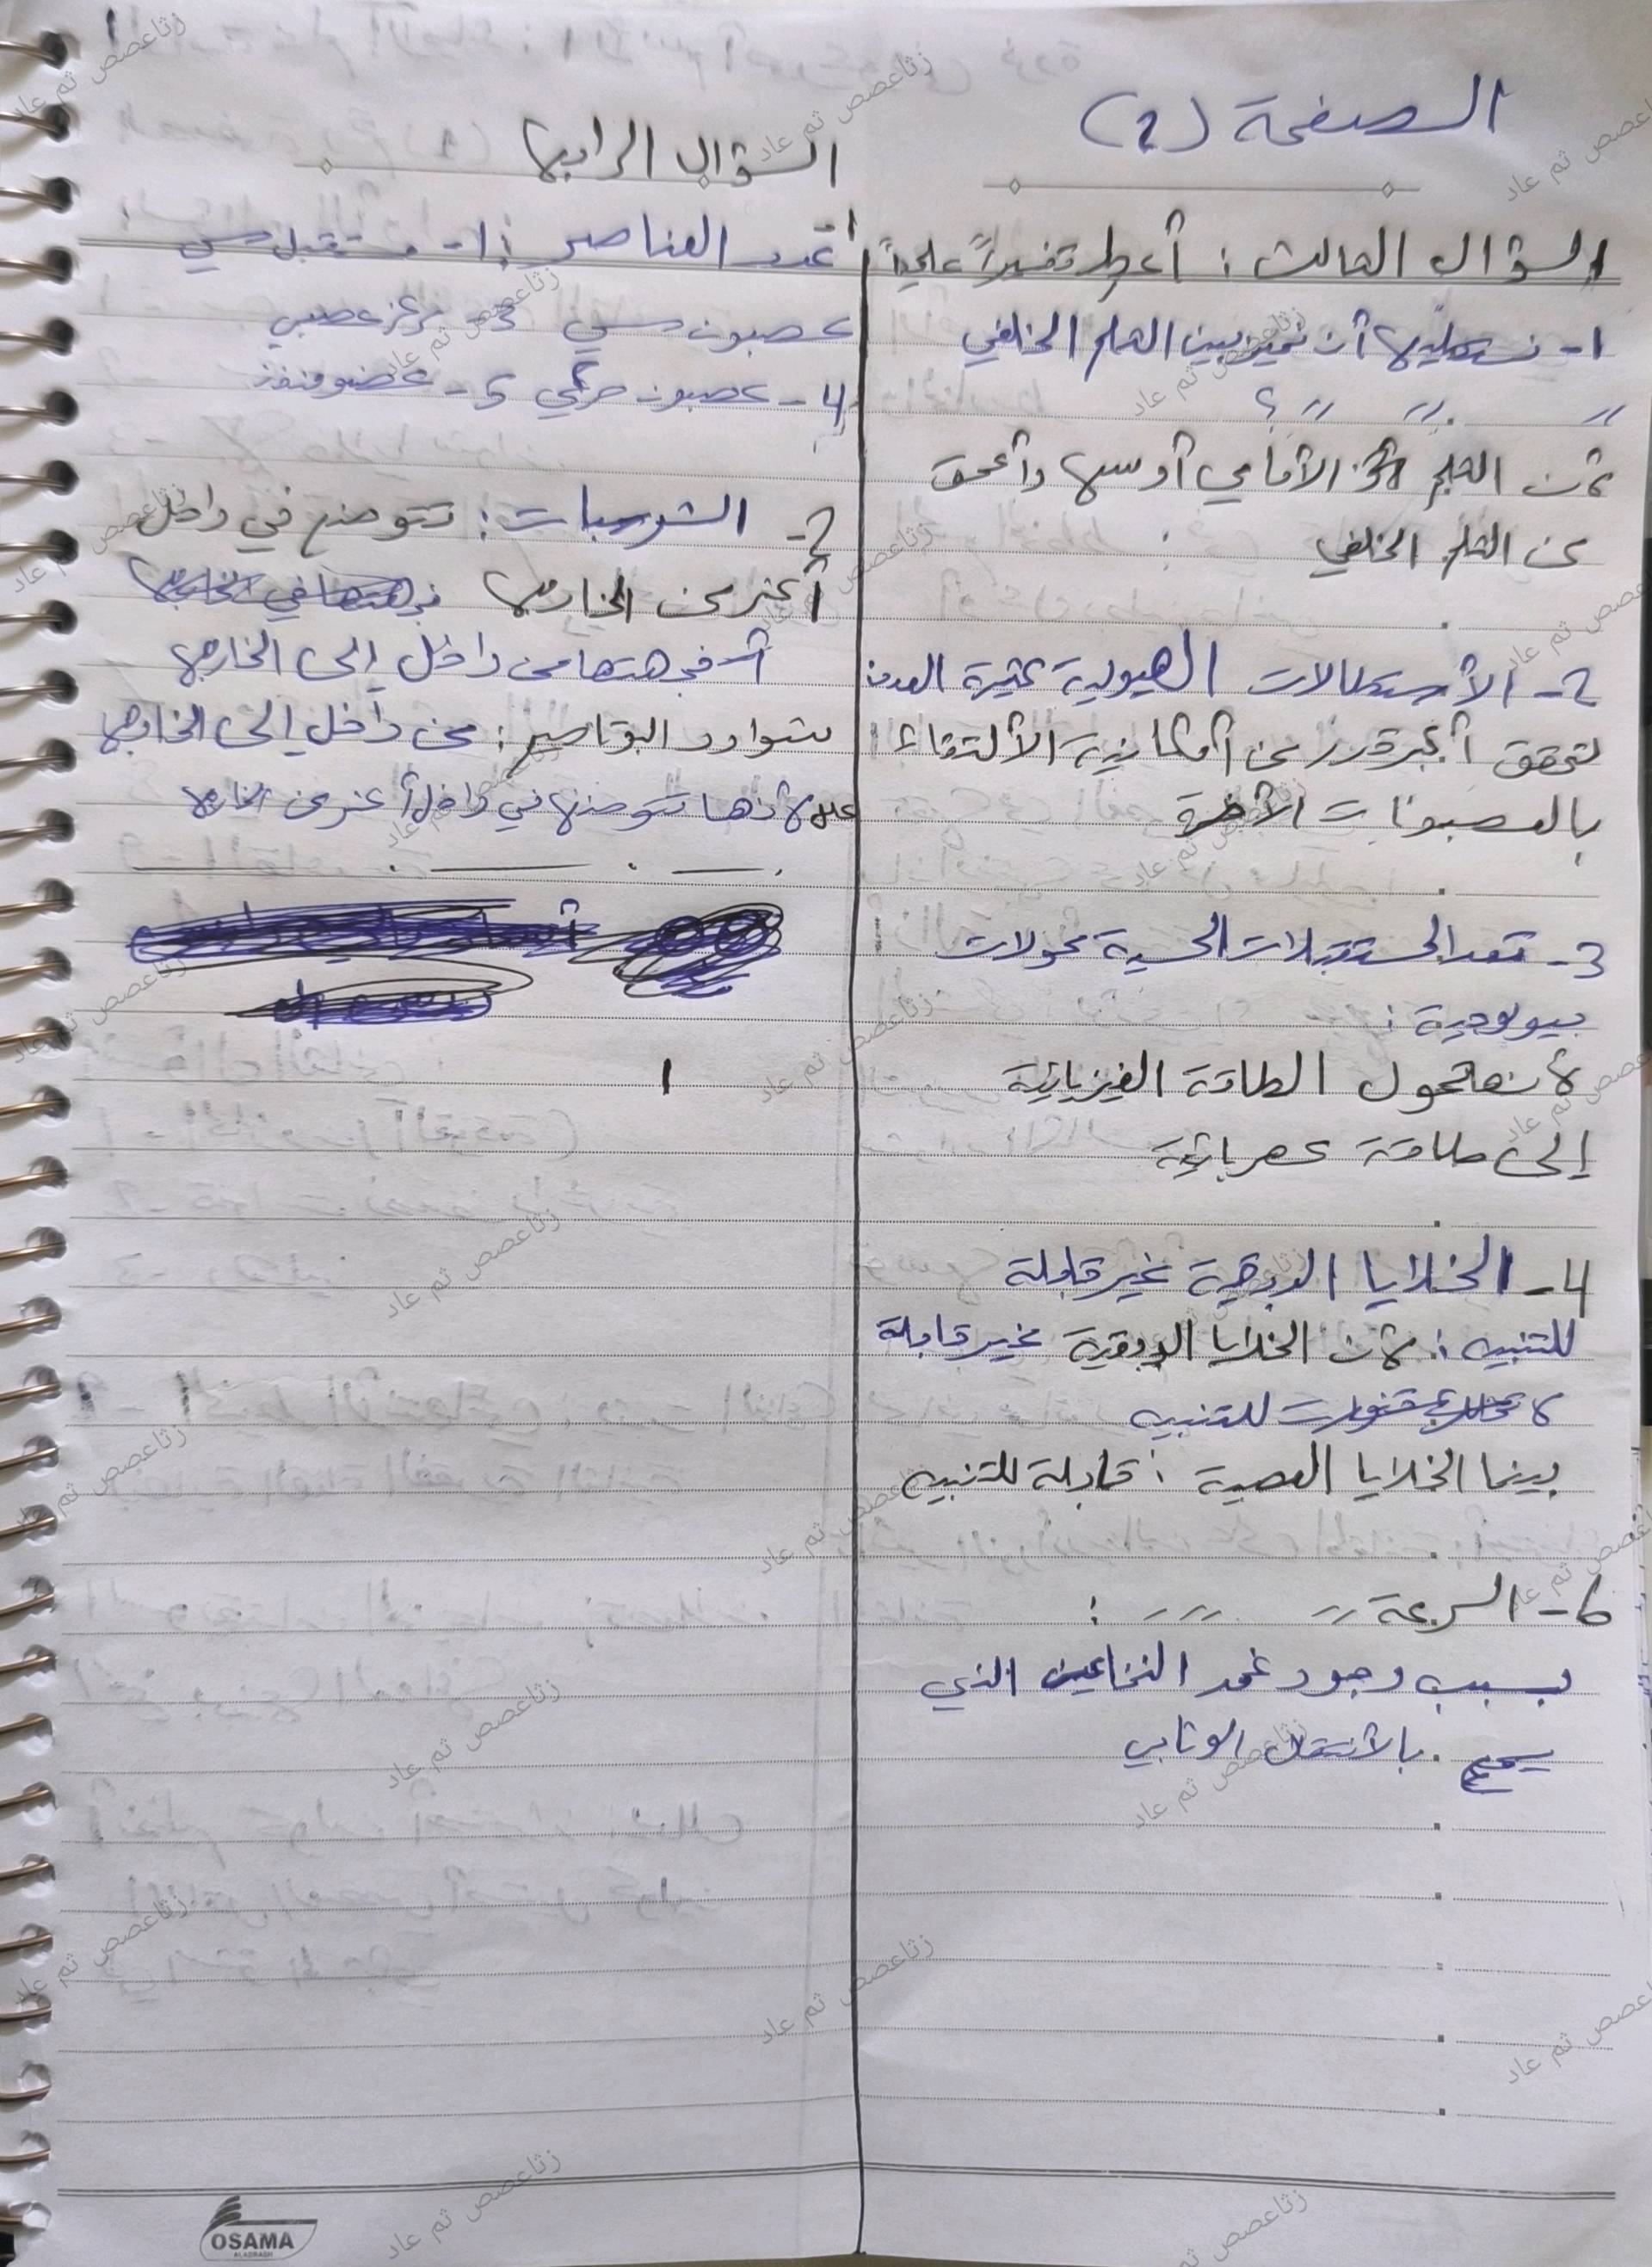 الصفحة (2)
السؤال الثالث : أعطِ تفسيراً علمياً
1- نستطيع أن نميز بين الثلم الخلفي
" " " " ؟
لأن الثلم الأمامي أوسع وأعمق
من الثلم الخلفي
2- الأستطالات الهيولية كثيرة العدد
لتحقق أكبر قدر من أمكانية الألتقاء
بالعصبونات الأخرى
3- تعد المستقبلات الحسية محولات
بيولوجية :
لأنها تحول الطاقة الفيزيائية
إلى طاقة كهربائية
4- الخلايا الدبقية غير قابلة
للتنبيه : لأن الخلايا الدبقية غير قابلة
للتنبيه
بينما الخلايا العصبية : قابلة للتنبيه
6- السرعة " " " :
بسبب وجود غمد النخاعين الذي
يسمح بالأنتقال الوثابي
السؤال الرابع
أعدد العناصر : 1- مستقبل حسي
عصبون حسي 3- مركز عصبي
4- عصبون حركي 5- عضو منفذ
2- الشرسبات : تتوضع في داخل
أكثر من الخارج
فجهتها من داخل إلى الخارج
شوارد البوتاسيوم : من داخل إلى الخارج
لأنها تتوضع في داخل أكثر من الخارج
OSAMA
ALADRASH
زثاعصص ثم عاد